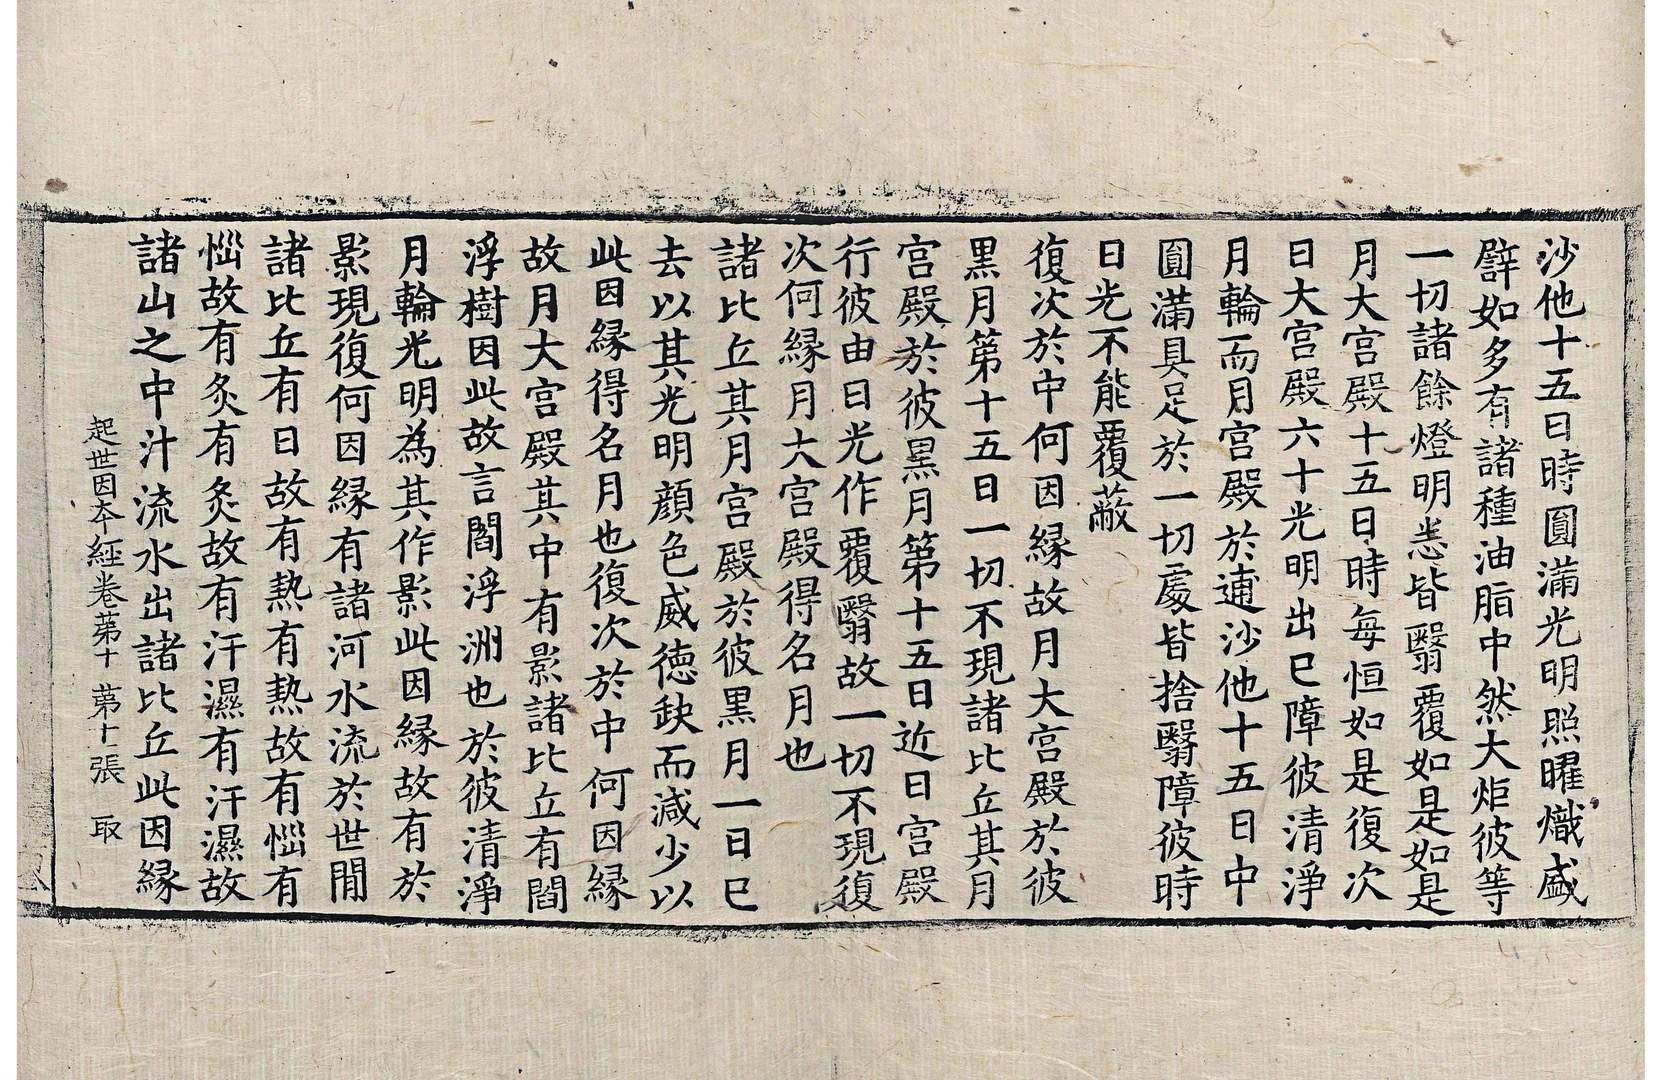 沙他十五日時圓滿光明照曜熾盛
譬如多有諸種油脂中然大炬彼等
一切諸餘燈明悉皆翳覆如是如是
月大宮殿十五日時每恒如是復次
日大宮殿六十光明出已障彼清淨
月輪而月宮殿於逋沙他十五日中
圓滿具足於一切處皆捨翳障彼時
日光不能覆蔽
復次於中何因緣故月大宮殿於彼
黒月第十五日一切不現諸比丘其月
宮殿於彼黒月第十五日近日宮殿
行彼由日光作覆翳故一切不現復
次何緣月大宮殿得名月也
諸比丘其月宮殿於彼黒月一日已
去以其光明顔色威德缺而減少以
此因緣得名月也復次於中何因緣
故月大宮殿其中有影諸比丘有閻
浮樹因此故言閻浮洲也於彼清淨
月輪光明為其作影此因緣故有於
影現復何因緣有諸河水流於世間
諸比丘有日故有熱有熱故有惱有
惱故有炙有炙故有汗濕有汗濕故
諸山之中汁流水出諸比丘此因緣
起世因夲經卷苐十 苐十一張 取